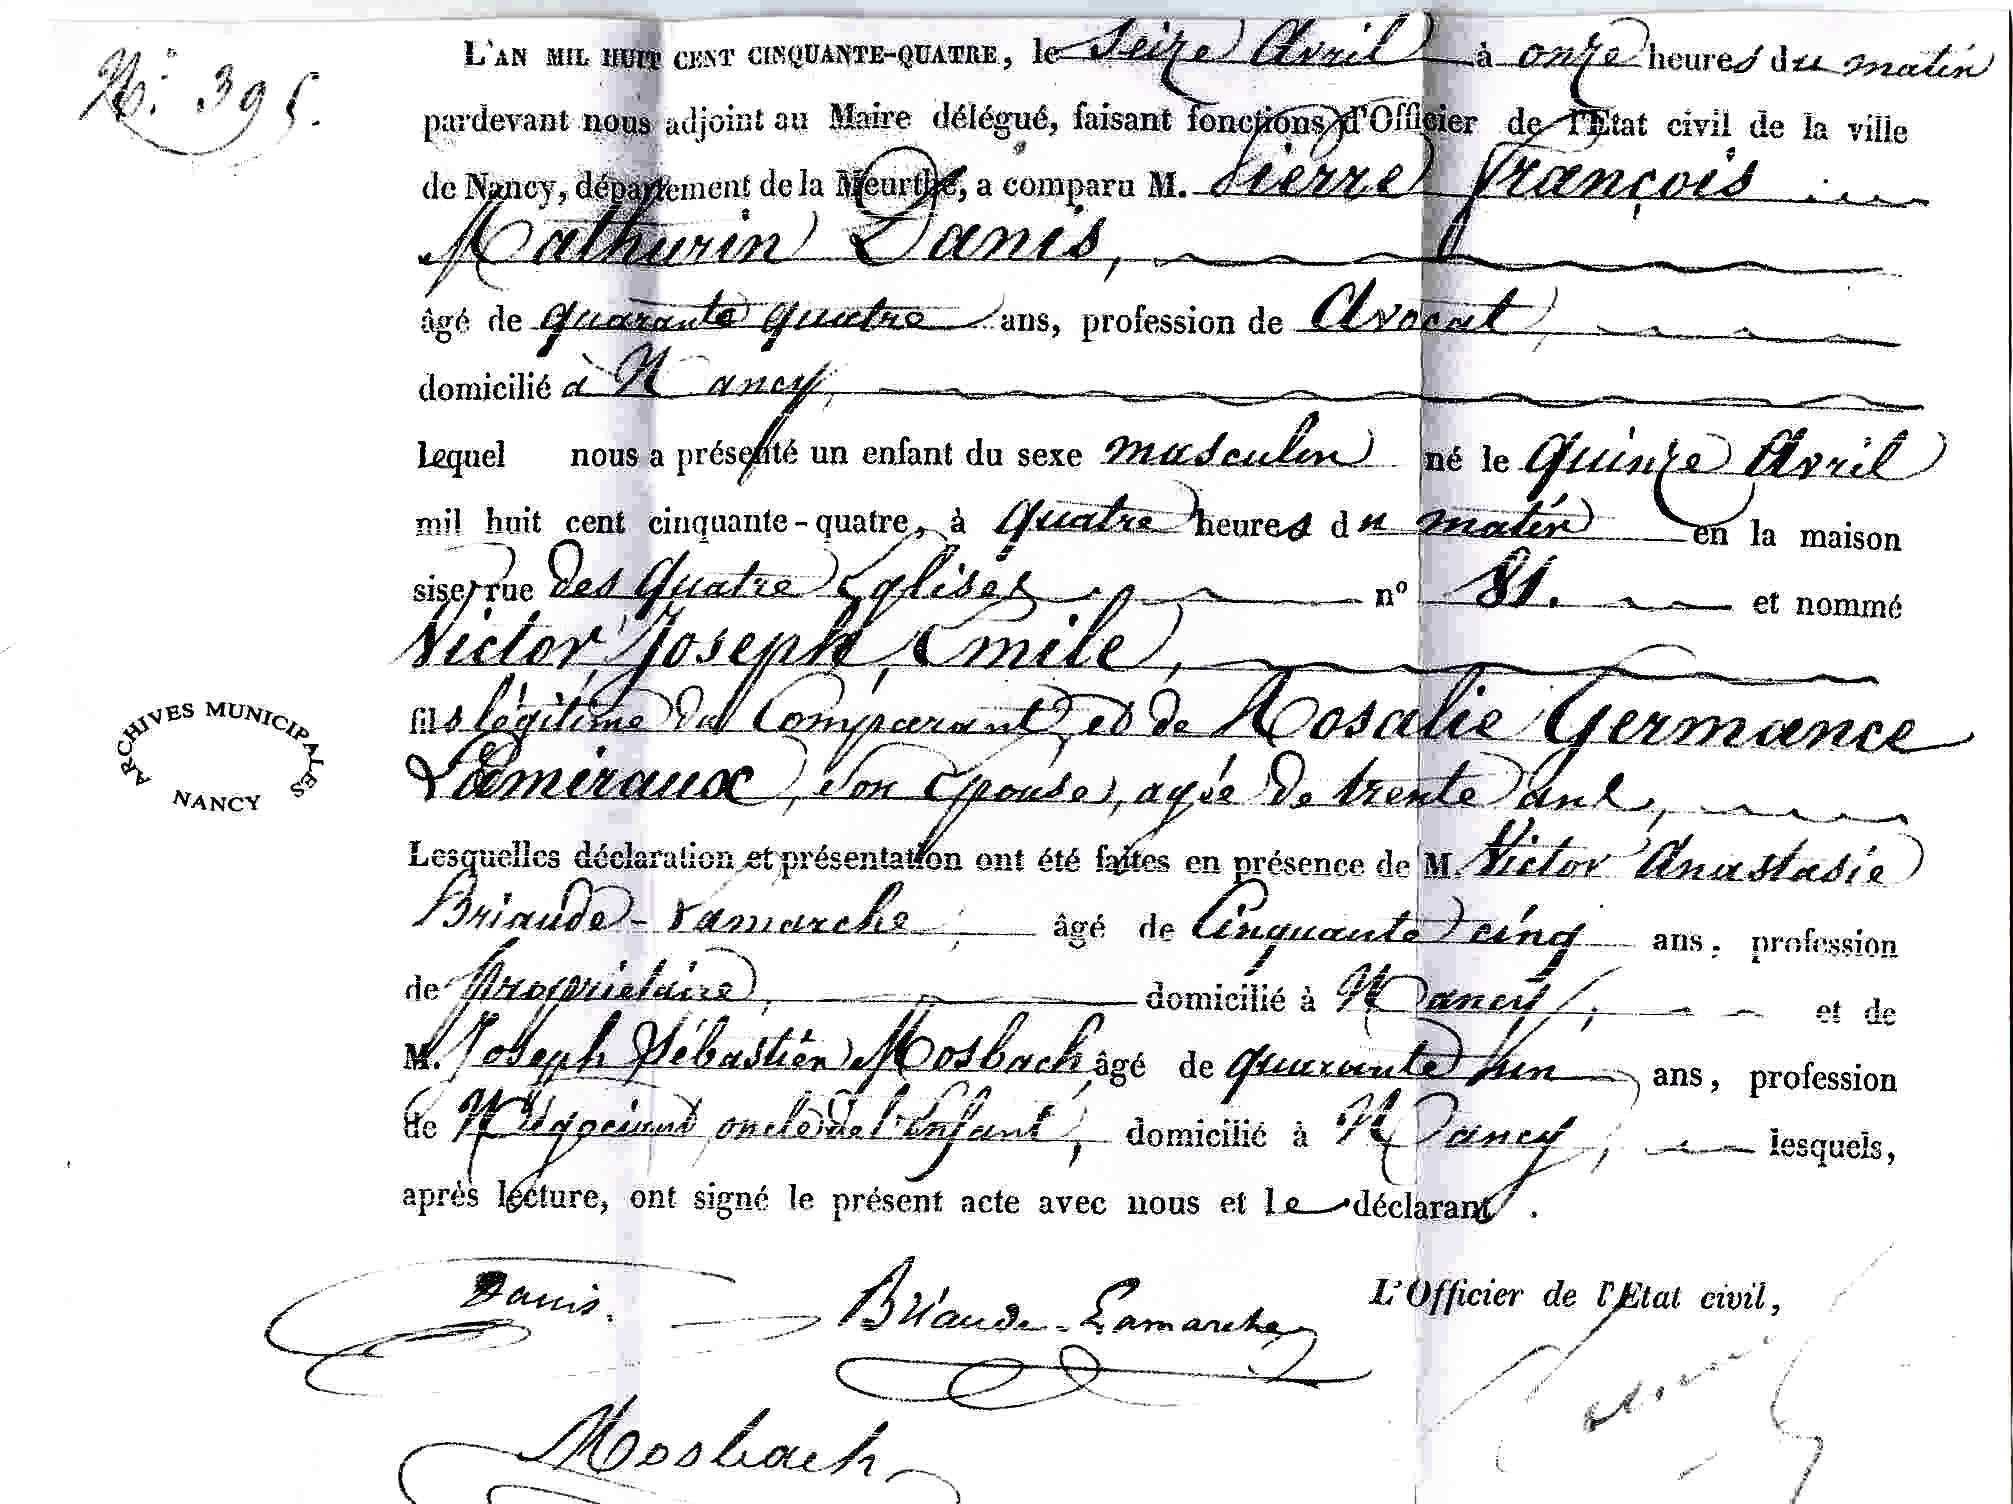 N.° 395.
L'AN MIL HUIT CENT CINQUANTE-QUATRE, le seize Avril à onze heures du matin
pardevant nous adjoint au Maire délégué, faisant fonctions d'Officier de l'Etat civil de la ville
de Nancy, département de la Meurthe, a comparu M. Pierre François
Mathurin Danis,
âgé de quarante quatre ans, profession de Avocat,
domicilié à Nancy,
lequel nous a présenté un enfant du sexe masculin né le quinze Avril
mil huit cent cinquante-quatre, à quatre heures du matin en la maison
sise rue des Quatre Eglises n° 81. et nommé
Victor, Joseph, Emile,
fils légitime du Comparant, et de Rosalie Germance
Laméraux, son épouse, agée de trente ans,
Lesquelles déclaration et présentation ont été faites en présence de M. Victor Anastasie
Briaude-Lamarche, âgé de Cinquante cinq ans, profession
de propriétaire, domicilié à Nancy, et de
M. Joseph Sébastien Mosbach, âgé de quarante un ans, profession
de Négociant oncle de l'enfant, domicilié à Nancy, lesquels,
après lecture, ont signé le présent acte avec nous et le déclarant.
ARCHIVES MUNICIPALES
NANCY
Danis.
Briaude-Lamarche
L'Officier de l'Etat civil,
Mosbach